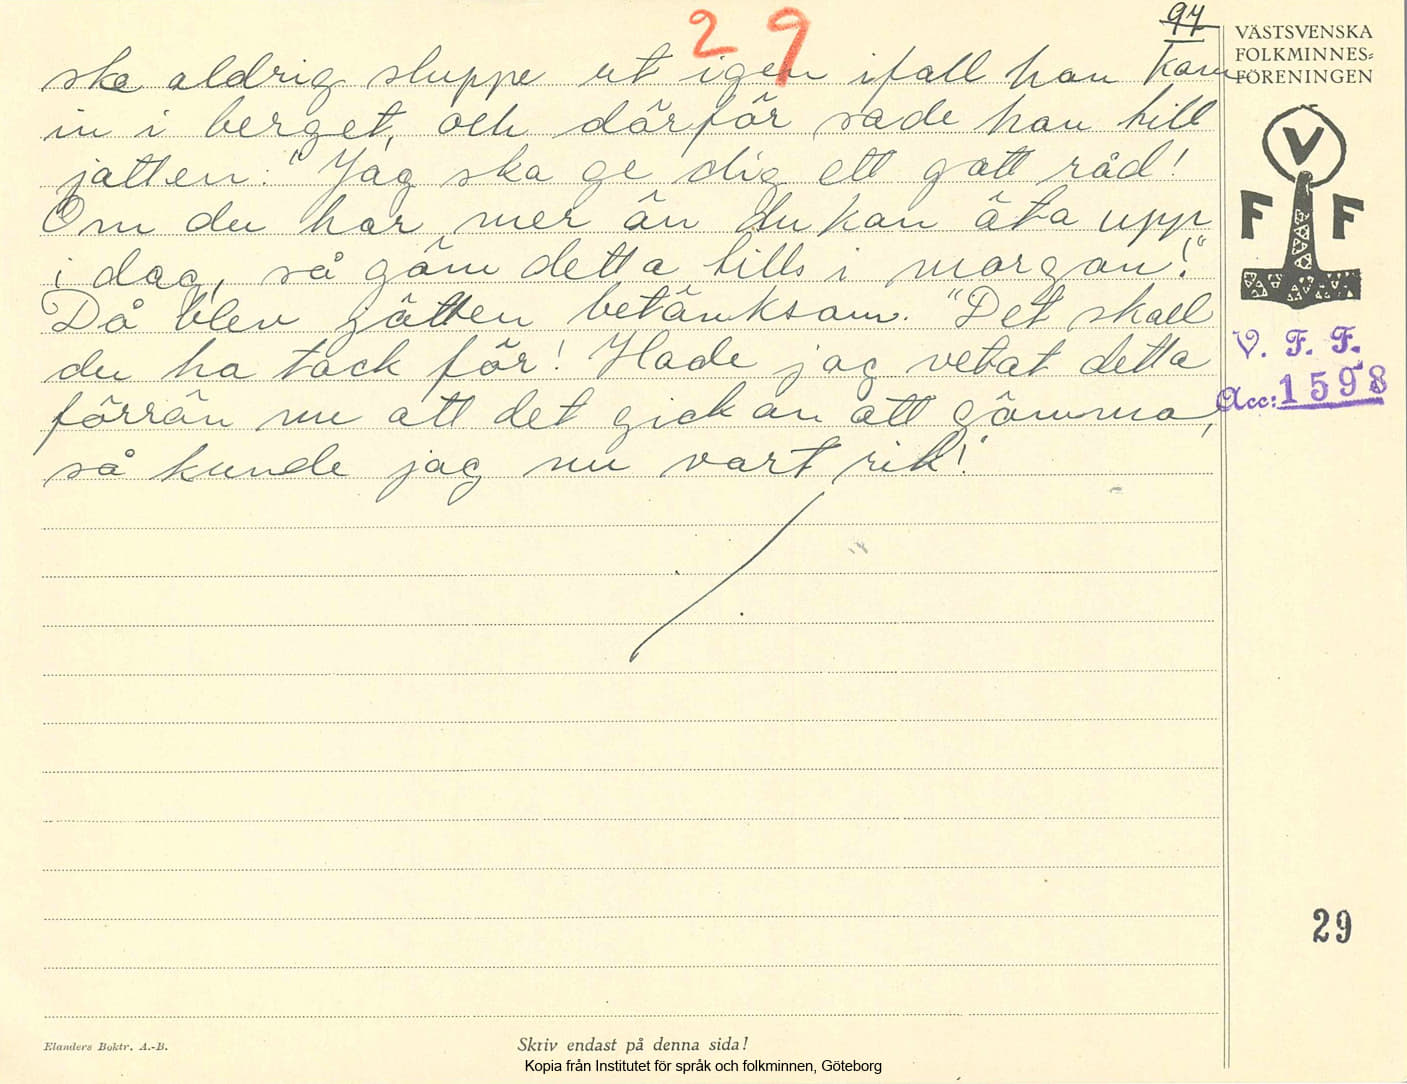 29
97
ska aldrig sluppe ut igen ifall han kom
in i berget, och därför sade han till
jatten: "Jag ska ge dig ett gott råd!
Om du har mer än du kan äta upp
i dag, så göm detta tills i morgon!"
Då blev jätten betänksam. "Det skall
du ha tack för! Hade jag vetat detta
förrän nu att det gick an att gömma,
så kunde jag nu vart rik!"
VÄSTSVENSKA
FOLKMINNES=
FÖRENINGEN
V
F F
V. F. F.
Acc: 1598
29
Elanders Boktr. A.-B.
Skriv endast på denna sida!
Kopia från Institutet för språk och folkminnen, Göteborg